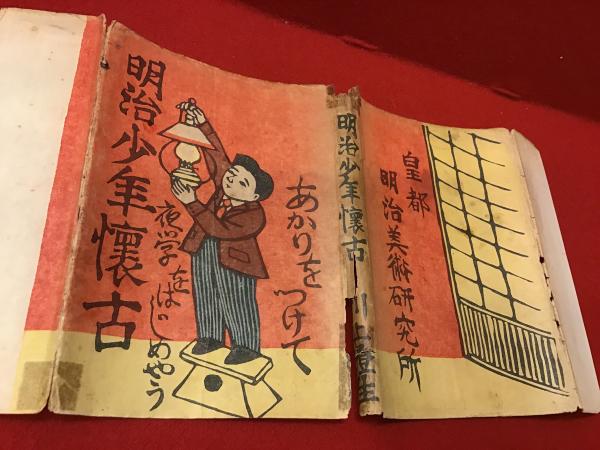 明治少年懐古
あかりを
つけて
夜学をはじめやう
明治少年懐古
川上澄生
皇都
明治美術研究所